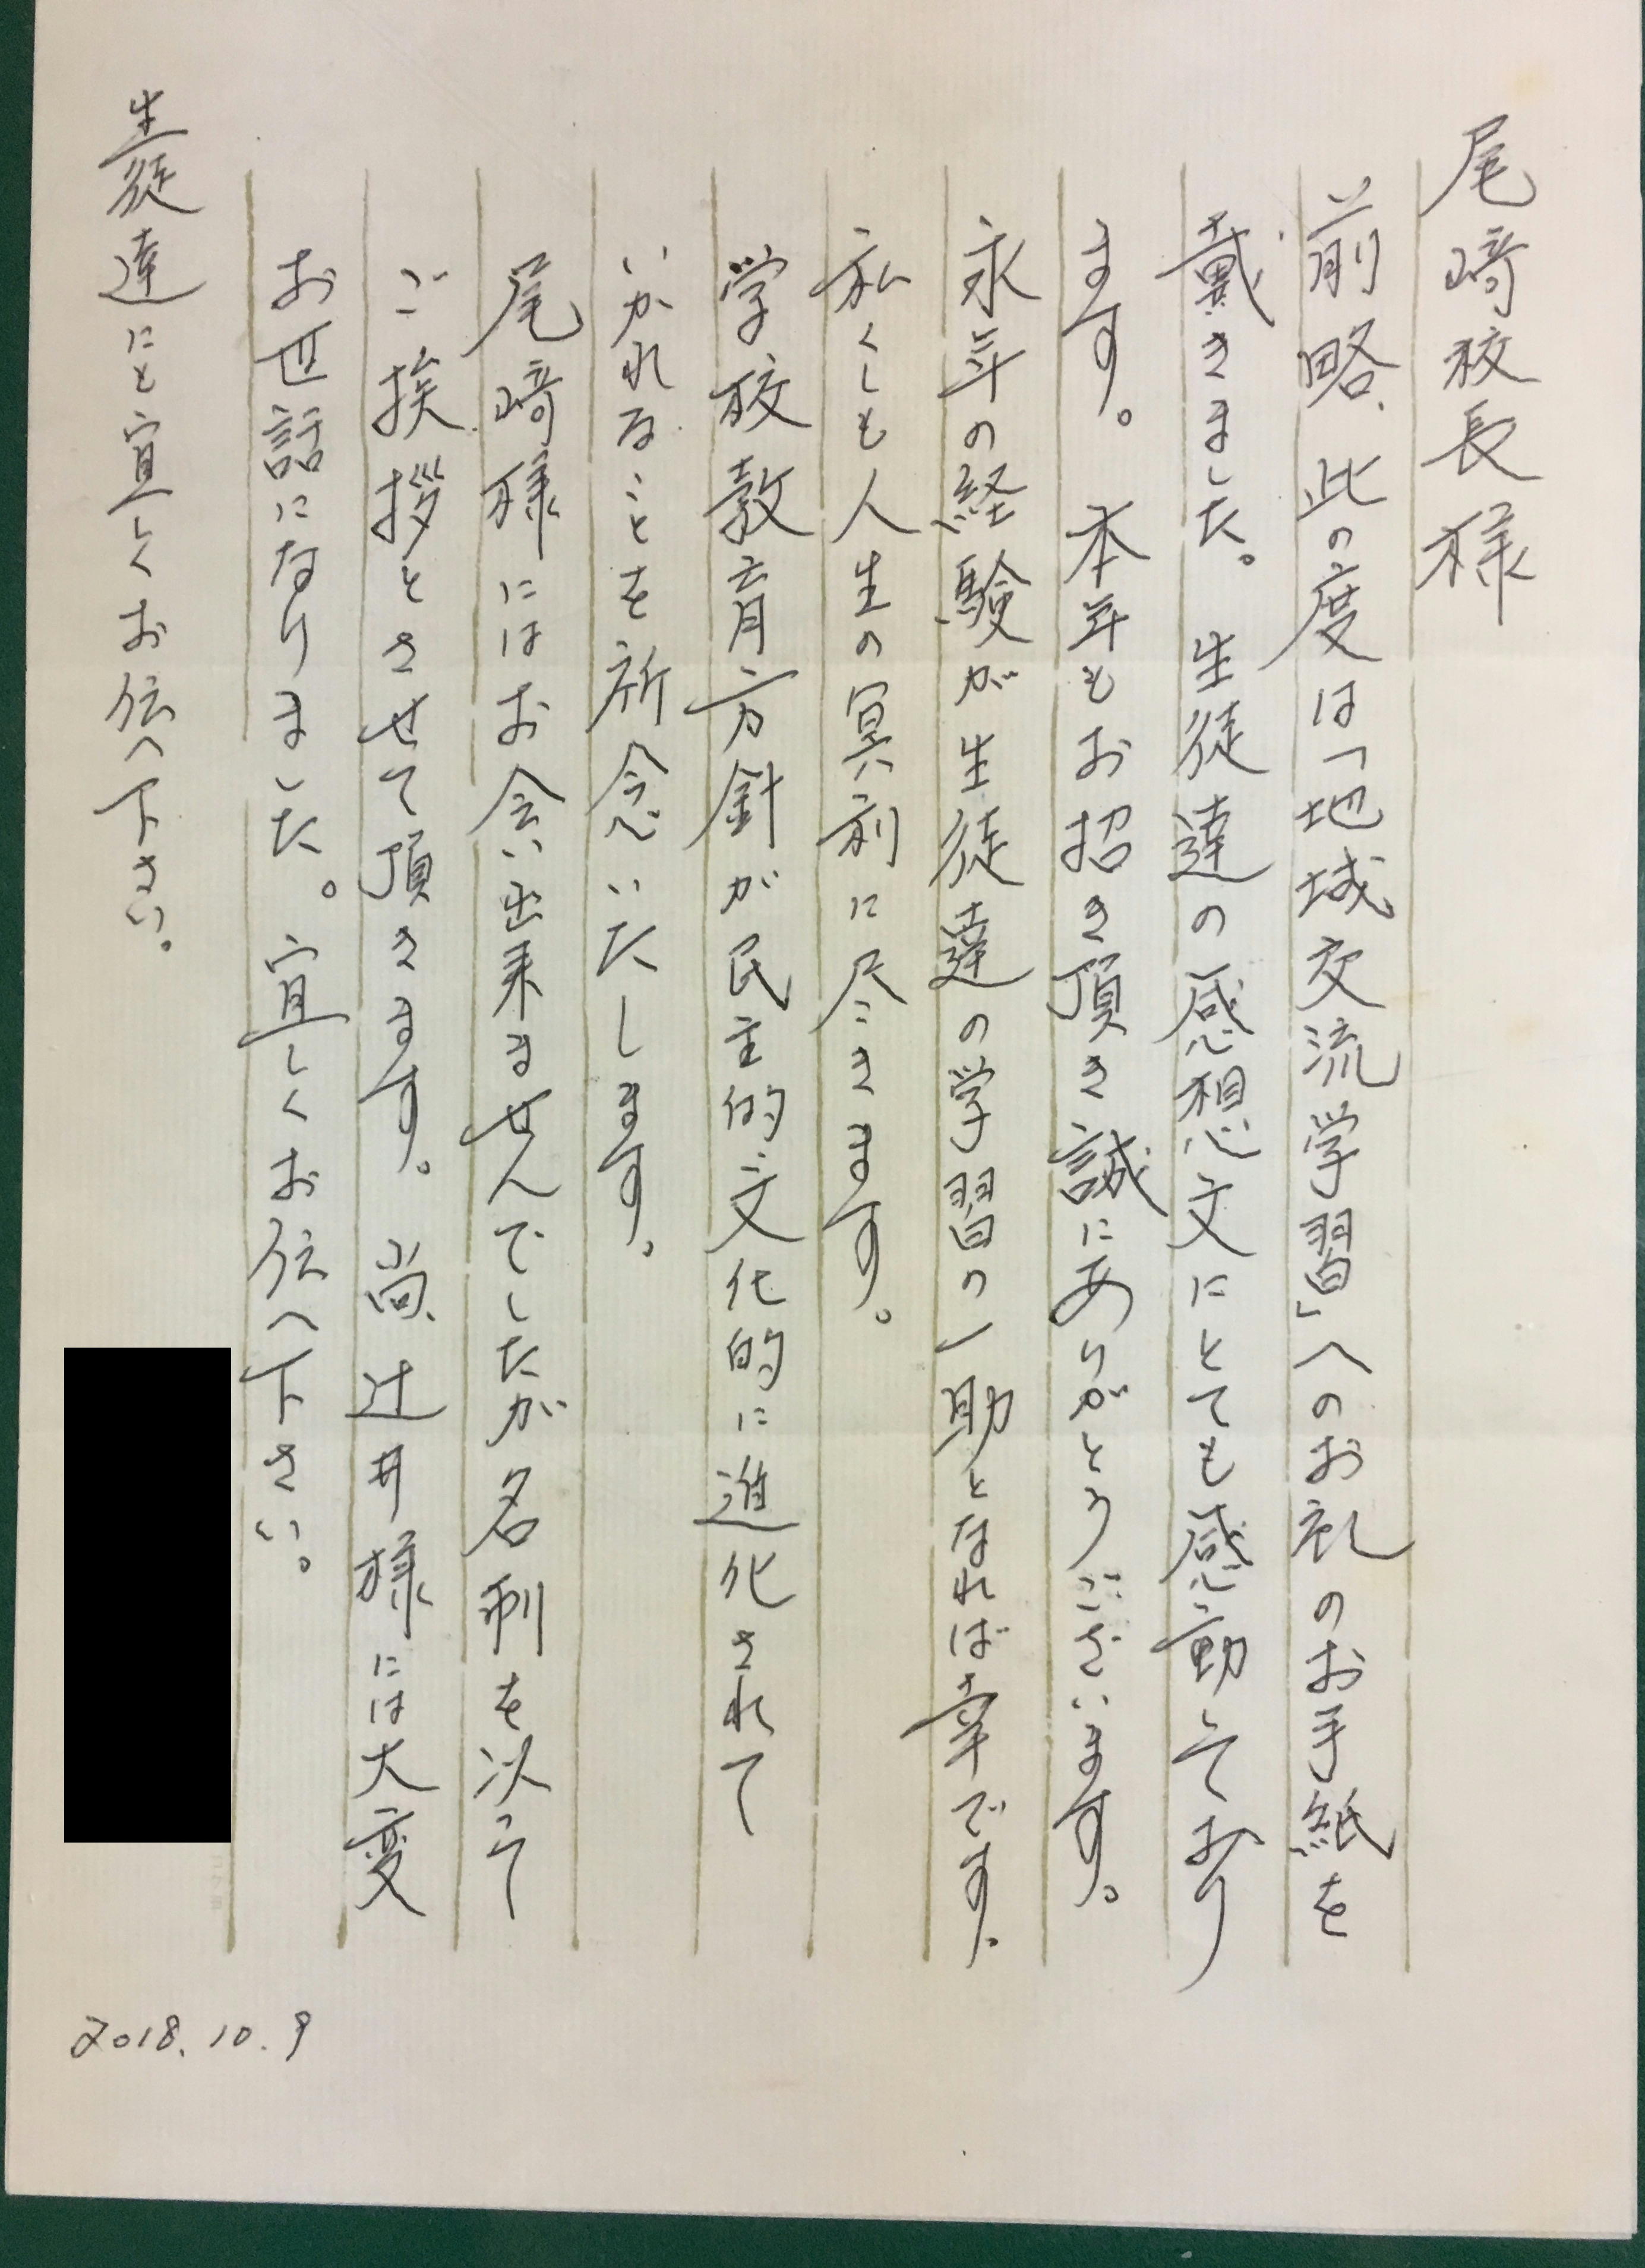 尾﨑校長様
前略、此の度は「地域交流学習」へのお礼のお手紙を
戴きました。生徒達の感想文にとても感動しており
ます。本年もお招き頂き誠にありがとうございます。
永年の経験が生徒達の学習の一助となれば幸です。
私くしも人生の冥利に尽きます。
学校教育方針が民主的文化的に進化されて
いかれることを祈念いたします。
尾﨑様にはお会い出来ませんでしたが名刺を以って
ご挨拶とさせて頂きます。尚、辻井様には大変
お世話になりました。宜しくお伝へ下さい。
生徒達にも宜しくお伝へ下さい。
2018.10.9